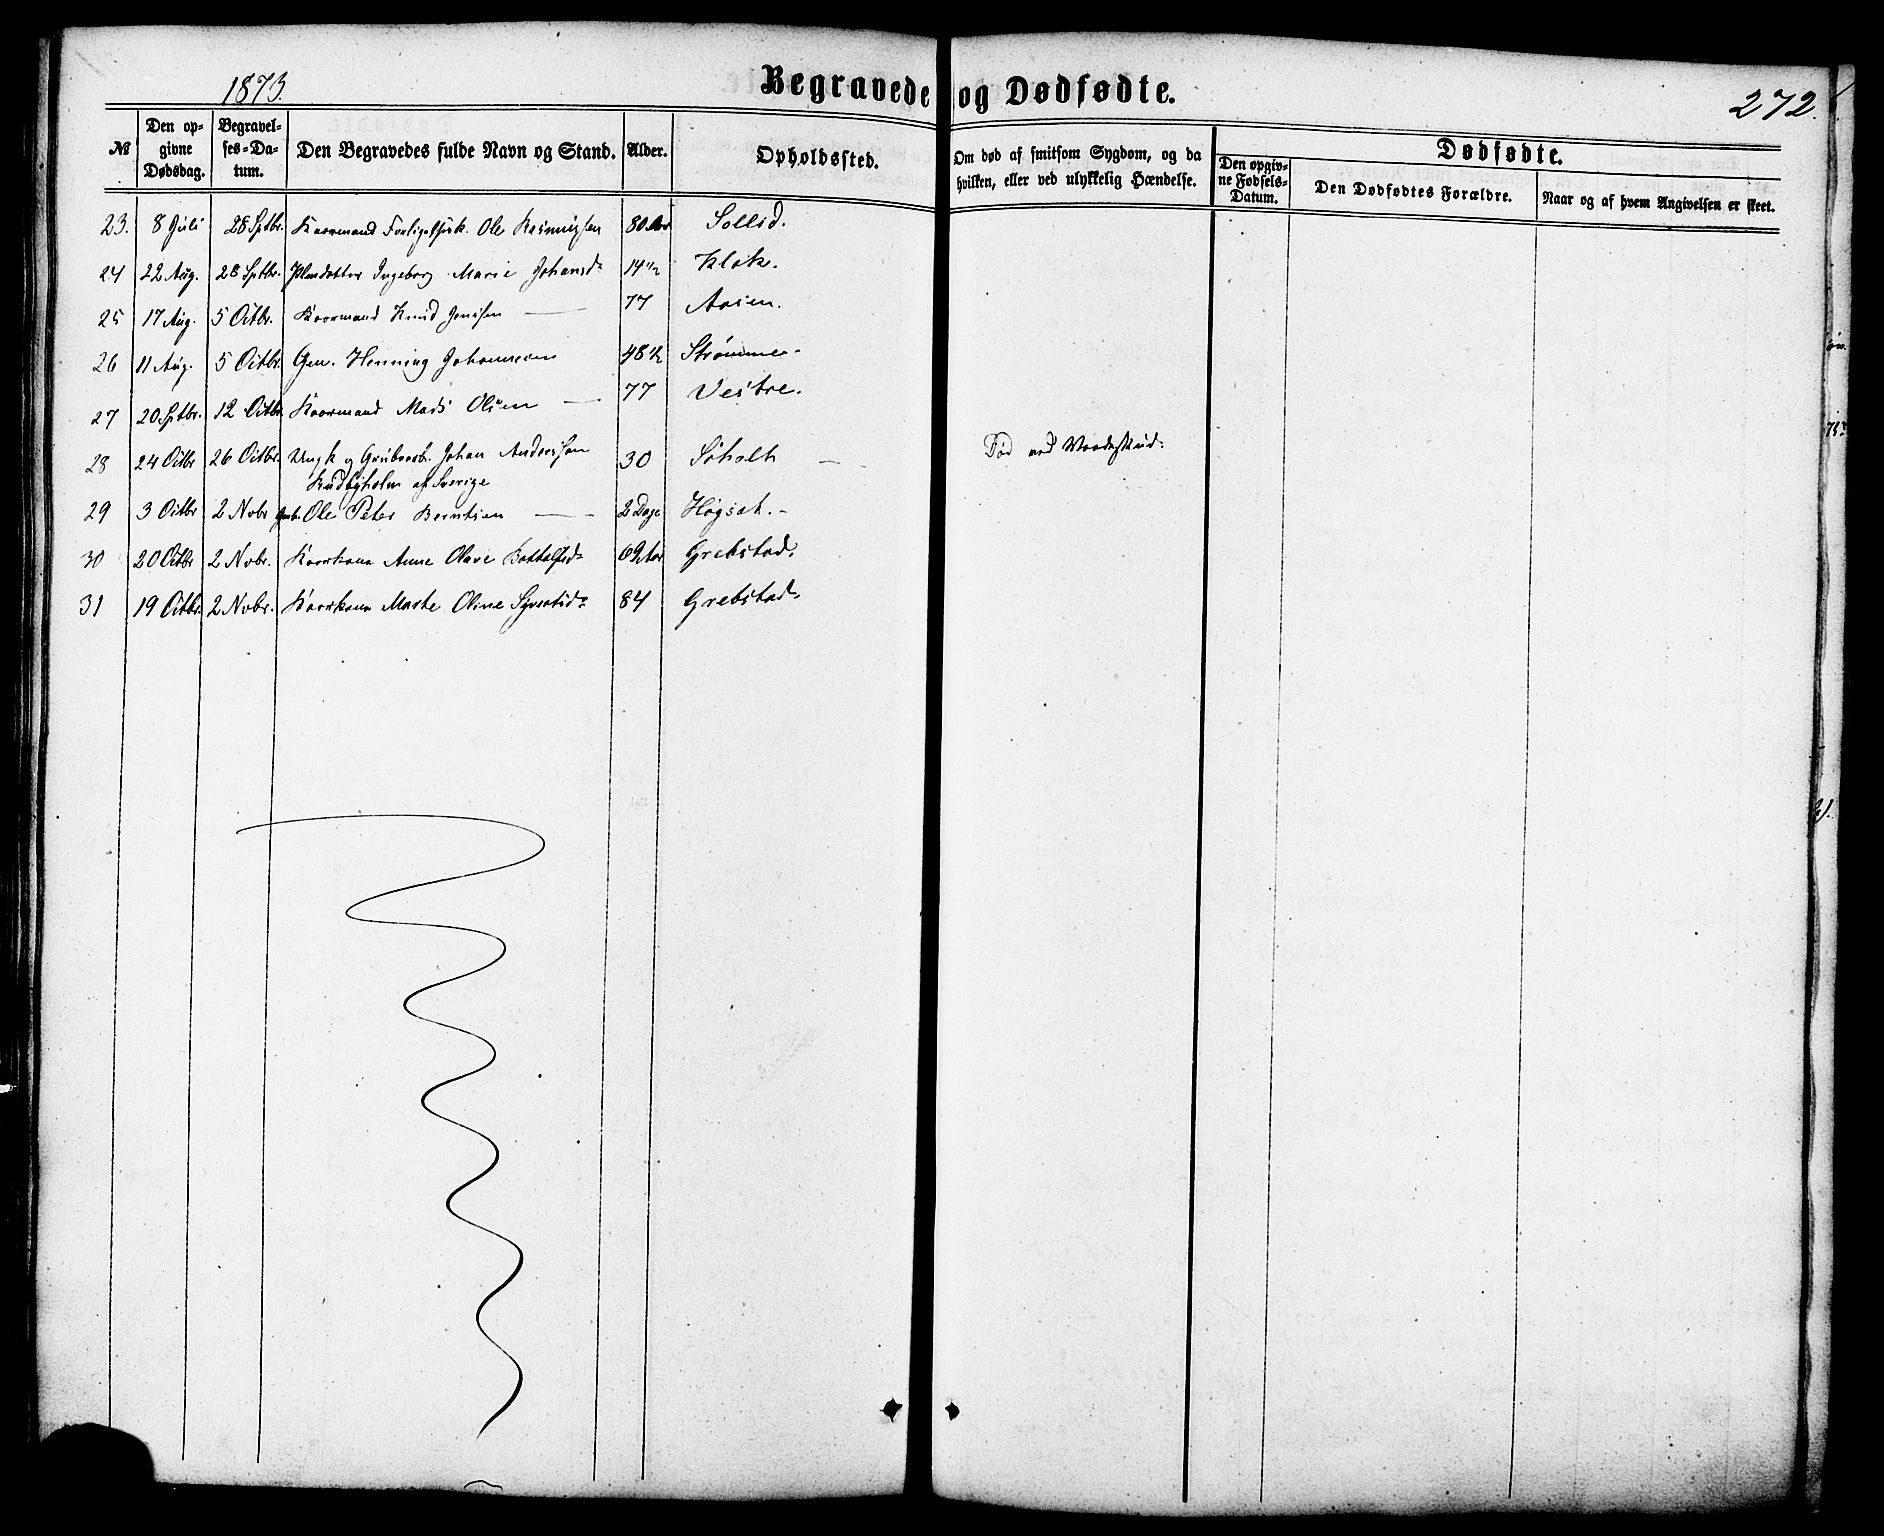 1873.
Begravede og Dødfødte.
272.
№
Den op-
givne
Dødsdag.
Begravel-
ses-Da-
tum.
Den Begravedes fulde Navn og Stand.
Alder.
Opholdssted.
Om død af smitsom Sygdom, og da
hvilken, eller ved ulykkelig Hændelse.
Dødfødte.
Den opgiv-
ne Fødsels-
Datum.
Den Dødfødtes Forældre.
Naar og af hvem Angivelsen er skeet.
23. 8 Juli 28 Sptbr. Kaarmand Ole Rasmussen 80 Aar Sollid.
24 22 Aug. 28 Sptbr. Ingeborg Marie Johansd: 14 1/2 Klok.
25 17 Aug. 5 Octbr. Kaarmand Knud Jensen — 77 Aasen.
26 11 Aug. 5 Octbr. Gm. Henning Johannesen 48 1/2 Strømme-
27 20 Sptbr. 12 Octbr. Kaarmand Mads Olsen — 77 Vestre.
28 24 Octbr 26 Octbr. Ungk og Grubearb. Johan Anderssøn 30 Søholt — Død ved Vaadeskud:
af Sverige
29 3 Octbr 2 Novbr Ole Peter Berntsen — 2 Dage Høgset.-
30 20 Octbr 2 Novbr. Kaarkone Anne Olave 69 Aar Grebstad.
31 19 Octbr. 2 Novbr. Kaarkone Marte Oline Syvertsd: 84 Grebstad.